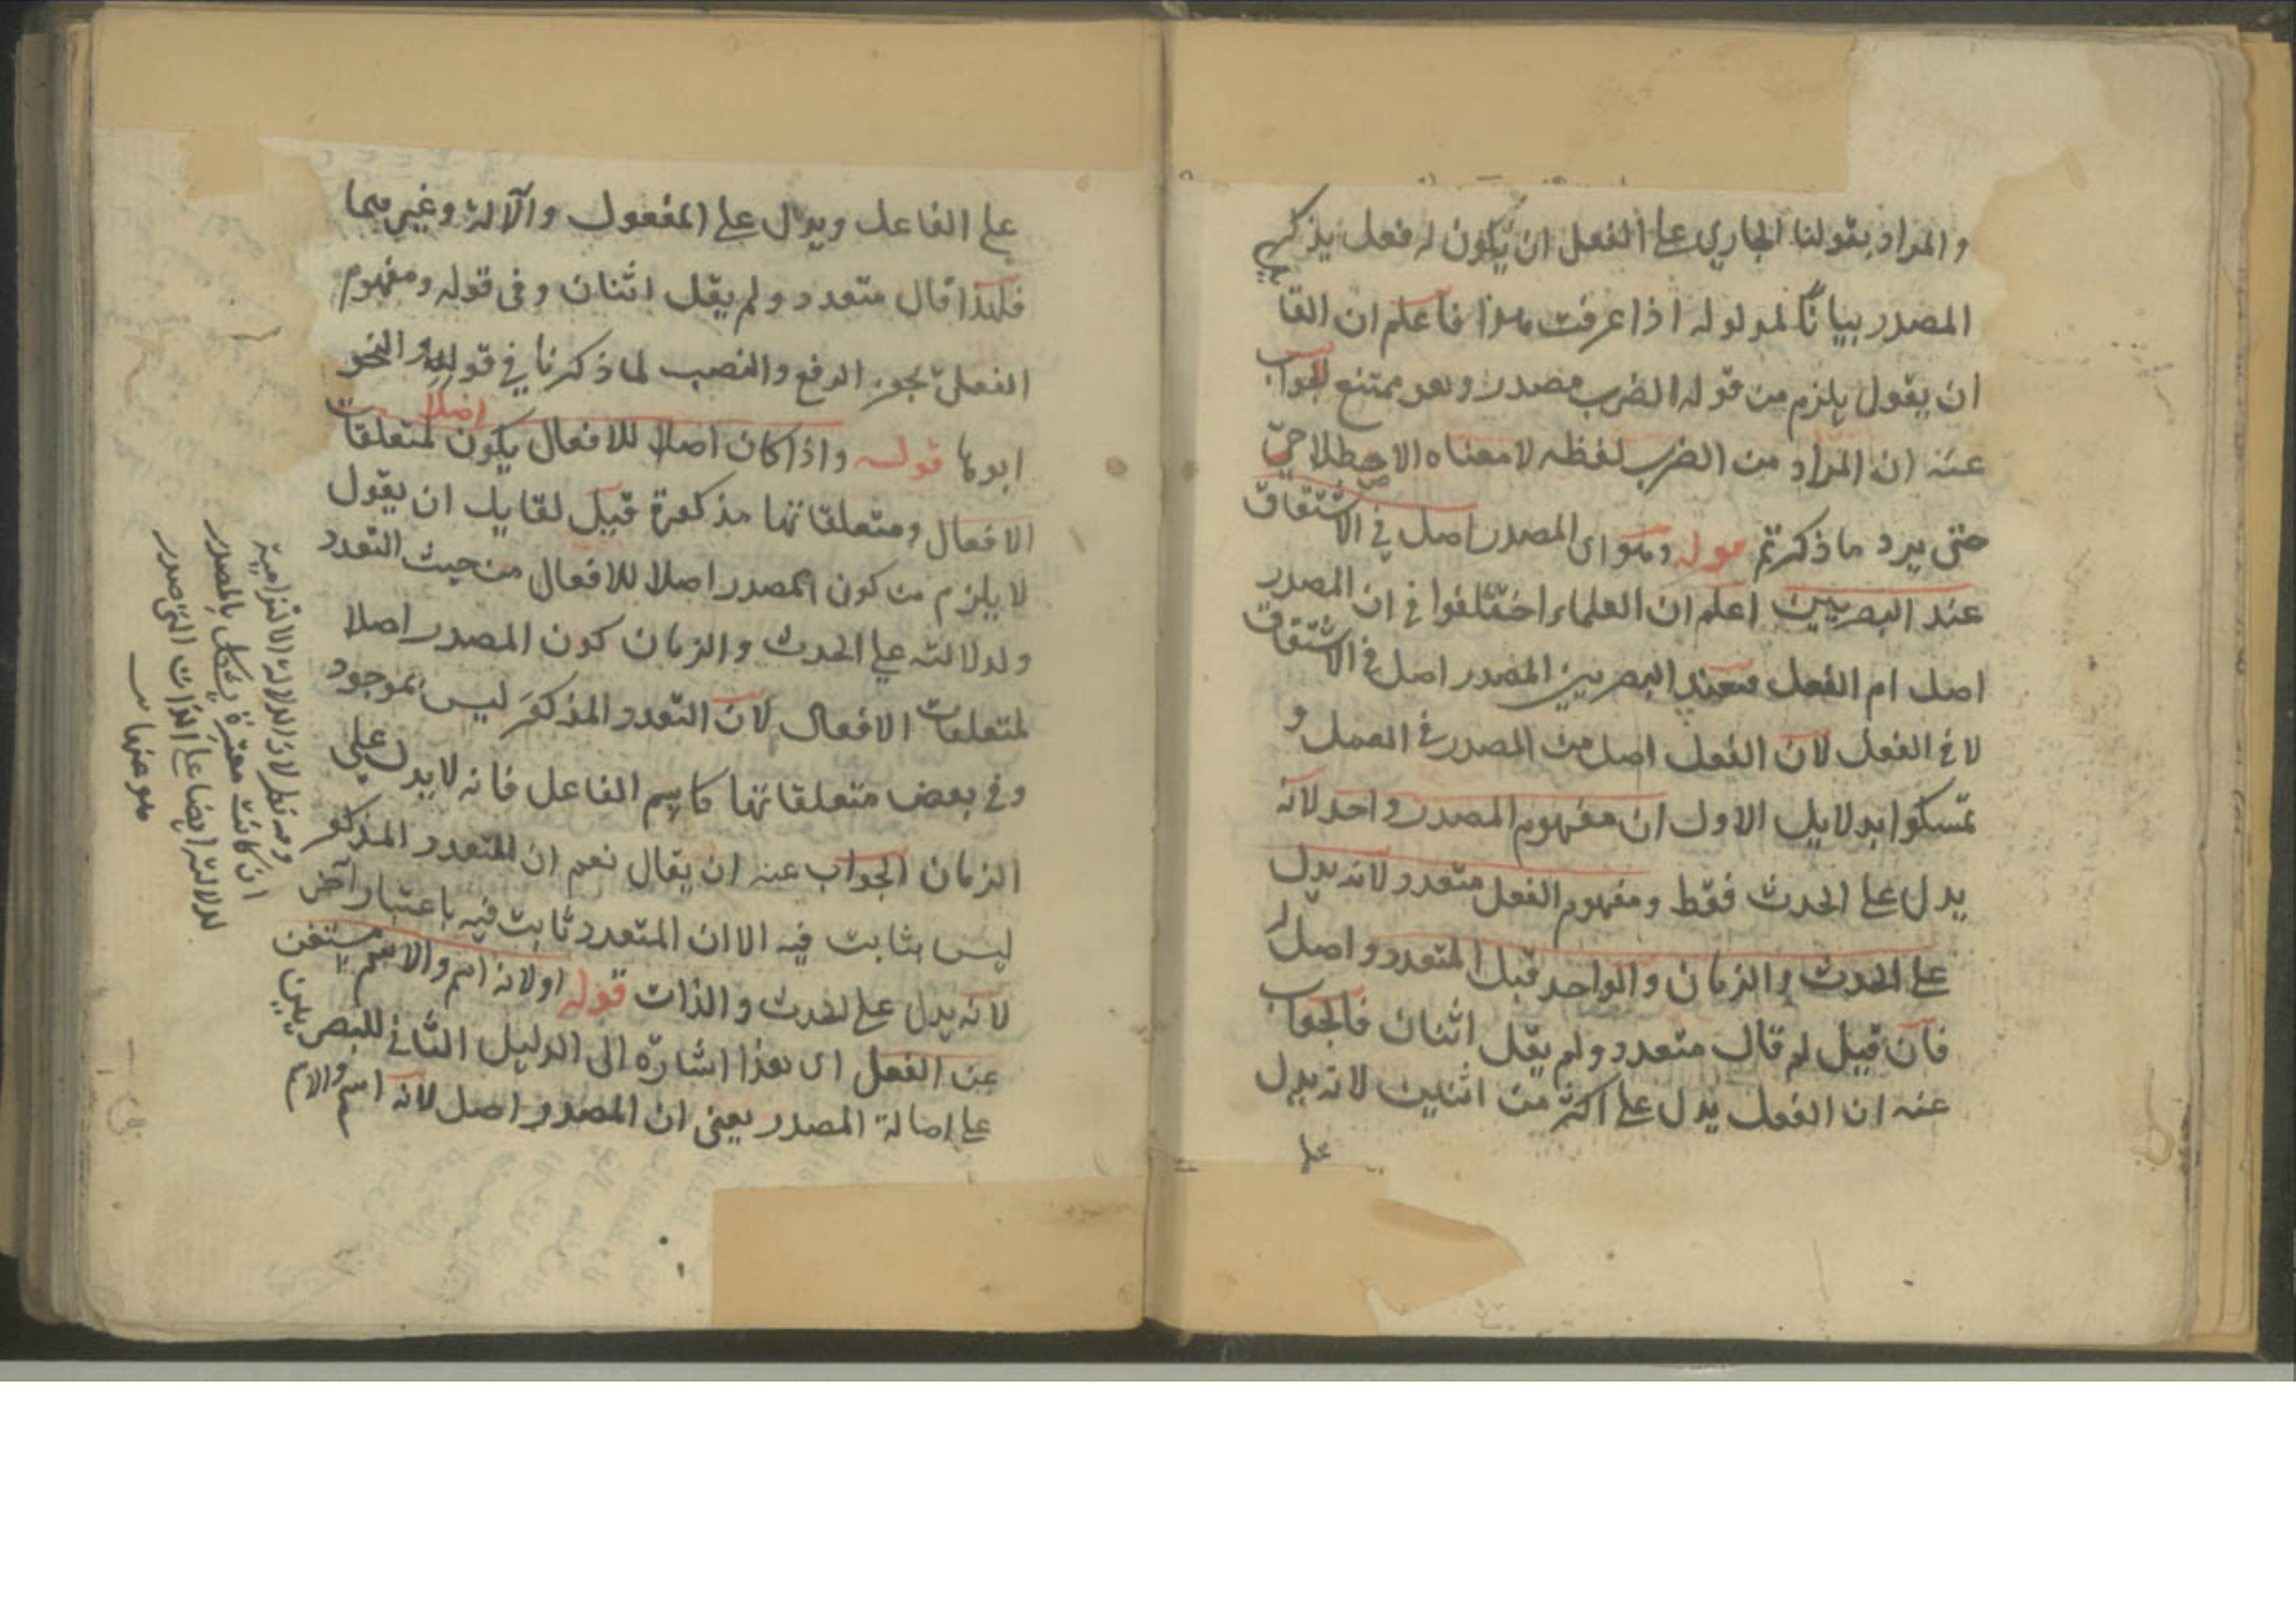 والمراد بقولنا الجاري على الفعل ان يكون له فعل يذكر
المصدر بيانا لمدلوله اذا عرفت هذا فاعلم ان القا
ان يقول يلزم من قوله الضرب مصدر وهو ممتنع الجواب
عنه ان المراد من الضرب لفظه لا معناه الاصطلاحي
حتى يرد ما ذكرتم قوله وهو اى المصدر اصل في الاشتقاق
عند البصريين اعلم ان العلماء اختلفوا في ان المصدر
اصل ام الفعل فعند البصريين المصدر اصل في الاشتقاق
لا في الفعل لان الفعل اصل من المصدر في العمل و
تمسكوا بدلايل الاول ان مفهوم المصدر واحد لانه
يدل على الحدث فقط ومفهوم الفعل متعدد لانه يدل
على الحدث والزمان والواحد قبل المتعدد واصل له
فان قيل لم قال متعدد ولم يقل اثنان فالجواب
عنه ان الفعل يدل على اكثر من اثنين لانه يدل
على
على الفاعل ويدل على المفعول والآلة وغيرهما
فلهذا قال متعدد ولم يقل اثنان وفى قوله ومفهوم
الفعل يجوز الرفع والنصب لما ذكرنا في قوله والنحو
ابوها قوله واذا كان اصلا للافعال يكون اصلا لمتعلقات
الافعال ومتعلقاتها مذكورة قيل لقايل ان يقول
لا يلزم من كون المصدر اصلا للافعال من حيث التعدد
ولدلالته على الحدث والزمان كون المصدر اصلا
لمتعلقات الافعال لان التعدد المذكور ليس بموجود
وفي بعض متعلقاتها كاسم الفاعل فانه لا يدل على
الزمان الجواب عنه ان يقال نعم ان المتعدد المذكو
ليس بثابت فيه الا ان المتعدد ثابت فيه باعتبار آخر
لانه يدل على الحدث والذات قوله او لانه اسم والاسم مستغن
عن الفعل اى هذا اشارة الى الدليل الثاني للبصريين
على اصالة المصدر يعنى ان المصدر اصل لانه اسم والاسم
وفيه نظر لان الدلالة الالتزامية
ان كانت معتبرة يشكل بالمصدر
لدلالته ايضا على الذات التي صدر
هو عنها